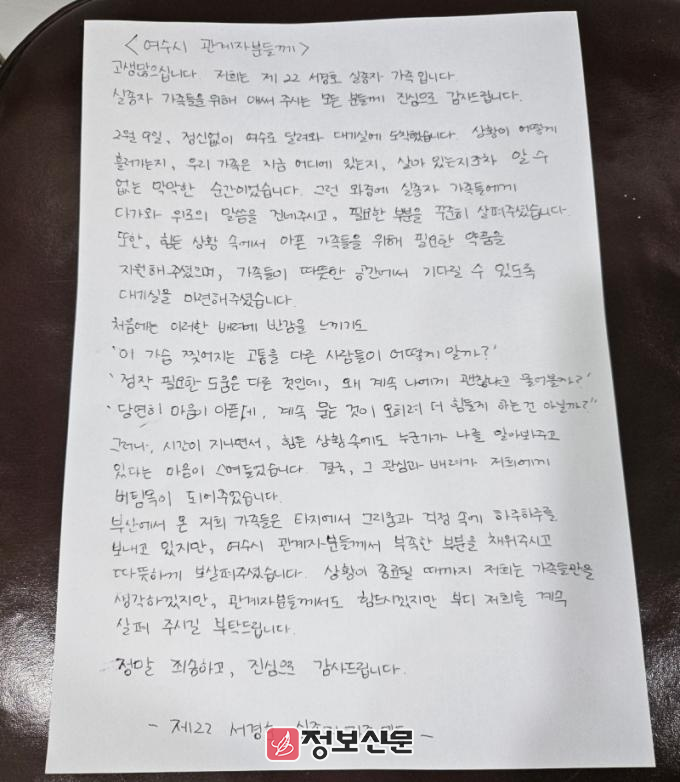 <여수시 관계자분들께>
고생많으십니다. 저희는 제 22 서경호 실종자 가족입니다.
실종자 가족들을 위해 애써 주시는 모든 분들께 진심으로 감사드립니다.
2월 9일, 정신없이 여수로 달려와 대기실에 도착했습니다. 상황이 어떻게
흘러가는지, 우리 가족은 지금 어디에 있는지, 살아 있는지조차 알 수
없는 막막한 순간이었습니다. 그런 와중에 실종자 가족들에게
다가와 위로의 말씀을 건네주시고, 필요한 부분을 꾸준히 살펴주셨습니다.
또한, 힘든 상황 속에서 아픈 가족들을 위해 필요한 약품을
지원해주셨으며, 가족들이 따뜻한 공간에서 기다릴 수 있도록
대기실을 마련해주셨습니다.
처음에는 이러한 배려에 반감을 느끼기도
'이 가슴 찢어지는 고통을 다른 사람들이 어떻게 알까?'
'정작 필요한 도움은 다른 것인데, 왜 계속 나에게 괜찮냐고 물어볼까?'
'당연히 마음이 아픈데, 계속 묻는 것이 오히려 더 힘들게 하는 건 아닐까?"
그러나, 시간이 지나면서, 힘든 상황 속에도 누군가가 나를 알아봐주고
있다는 마음이 스며들었습니다. 결국, 그 관심과 배려가 저희에게
버팀목이 되어주었습니다.
부산에서 온 저희 가족들은 타지에서 그리움과 걱정 속에 하루하루를
보내고 있지만, 여수시 관계자분들께서 부족한 부분을 채워주시고
따뜻하게 보살펴주셨습니다. 상황이 종료될 때까지 저희는 가족들만을
생각하겠지만, 관계자분들께서도 힘드시겠지만 부디 저희를 계속
살펴 주시길 부탁드립니다.
정말 죄송하고, 진심으로 감사드립니다.
- 제22 서경호 -
정보신문